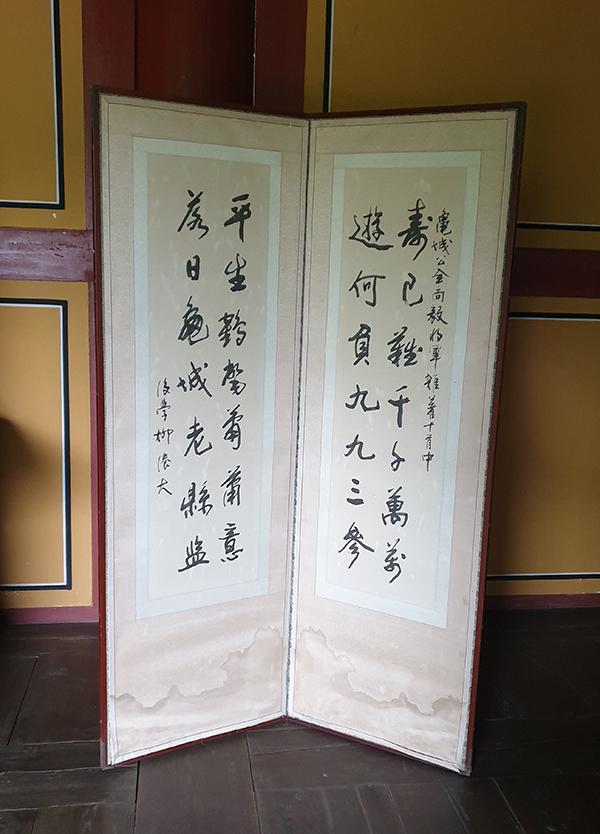 龜城公金尚毅將軍雜著十首中
壽已難千千萬萬
遊何負九九三參
平生鶴髮蕭蕭意
落日龜城老縣監
後學柳 大